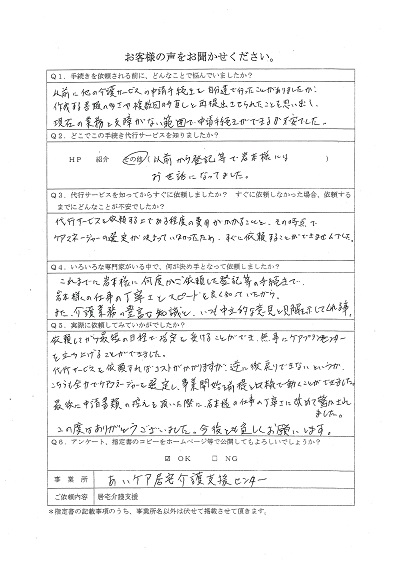 お客様の声をお聞かせください。
Q1．手続きを依頼される前に、どんなことで悩んでいましたか？
以前に他の介護サービスの申請手続きを自力で行ったことがありましたが、
作成する書類の多さや複数回手直しと再提出させられたことを思い出し、
現在の業務と支障がない範囲で申請手続きができるか不安でした。
Q2．どこでこの手続き代行サービスを知りましたか？
ＨＰ 紹介 その他（以前から登記等で岩本様には ）
お世話になってました。
Q3．代行サービスを知ってからすぐに依頼しましたか？ すぐに依頼しなかった場合、依頼する
までにどんなことが不安でしたか？
代行サービスを依頼する上である程度の費用がかかることと、その時点で
ケアマネージャーの選定が決まっていなかったため、すぐに依頼することができませんでした。
Q4．いろいろな専門家がいる中で、何が決め手となって依頼しましたか？
これまでに岩本様に何度かご依頼した登記等の手続きで、
岩本様の仕事の丁寧さとスピードを良く知っていたから。
また、介護業務の豊富な知識と、いつも中立的な意見と見解を示してくれる
Q5．実際に依頼してみていかがでしたか？
依頼してから最短の日程で指定を受けることができ、無事にケアプランセンター
を立ち上げることができました。
代行サービスを依頼すればコストがかかりますが、逆に後戻りできないというか、
こちらも全力でケアマネージャーを選定し、事業開始を目標に本気で動くことができました。
最後に申請書類の控えを頂いた際に、岩本様の仕事の丁寧さに改めて驚かされ
ました。
この度はありがとうございました。今後とも宜しくお願いします。
Q6．アンケート、指定書のコピーをホームページ等で公開してもよろしいでしょうか？
☑ OK □ NG
事業所 あいケア居宅介護支援センター
ご依頼内容 居宅介護支援
＊指定書の記載事項のうち、事業所名以外は伏せて掲載させて頂きます。